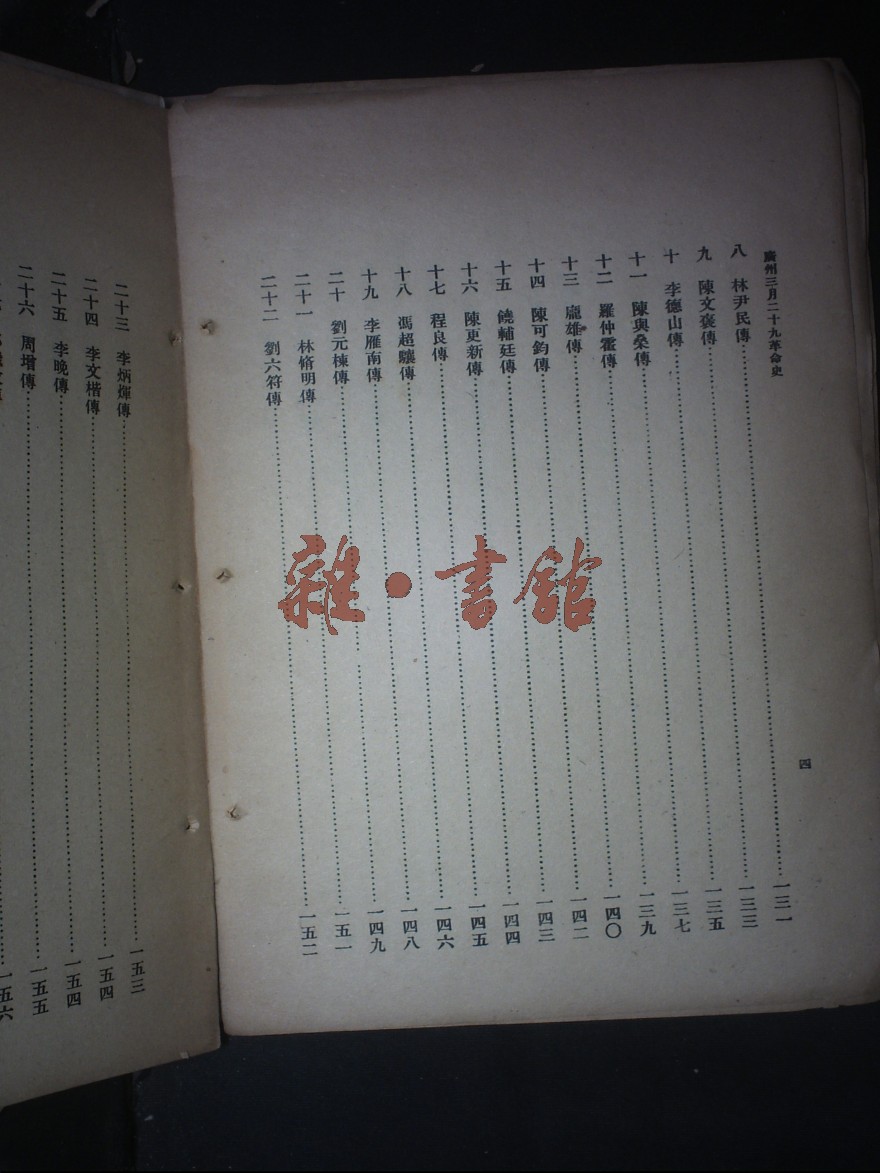 廣州三月二十九革命史
四
八 林尹民傳 一三一
九 陳文褒傳 一三三
十 李德山傳 一三五
十一 陳與燊傳 一三七
十二 羅仲霍傳 一三九
十三 龐雄傳 一四〇
十四 陳可鈞傳 一四二
十五 饒輔廷傳 一四三
十六 陳更新傳 一四四
十七 程良傳 一四五
十八 馮超驤傳 一四六
十九 李雁南傳 一四八
二十 劉元棟傳 一四九
二十一 林脩明傳 一五一
二十二 劉六符傳 一五二
二十三 李炳煇傳 一五三
二十四 李文楷傳 一五四
二十五 李晚傳 一五四
二十六 周增傳 一五五
一五六
雜·書館